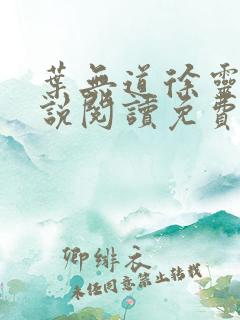 葉無道徐靈
說閱讀免費
卿緋衣
未经同意禁止转载